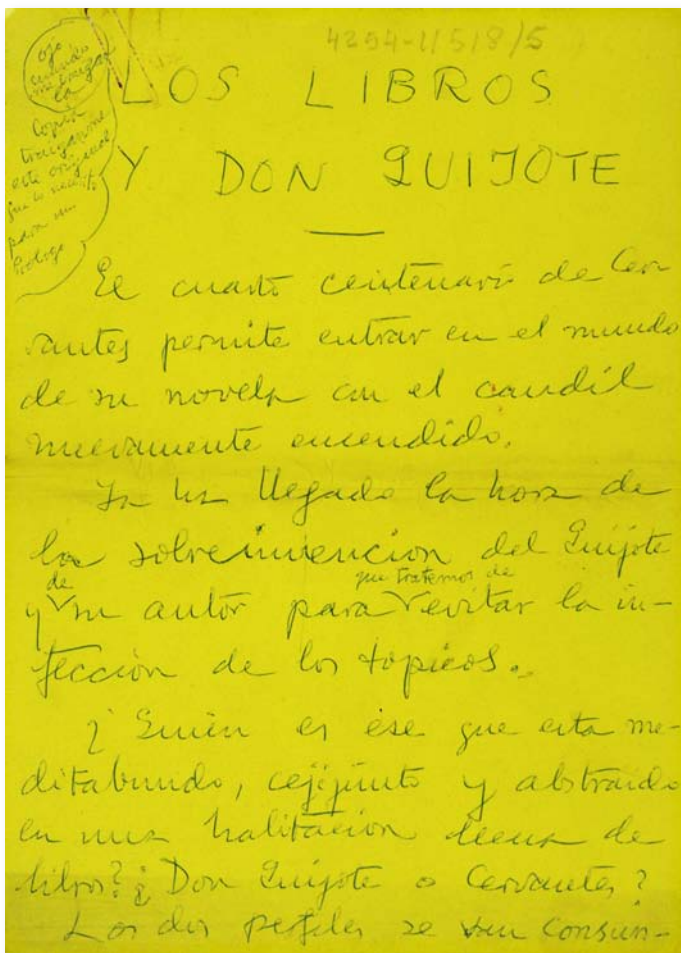 4294-11518/5
ojo
cuando
me traigan
la
copia
traiganme
este original
que lo necesito
para un
Prólogo
LOS LIBROS
Y DON QUIJOTE
El cuarto centenario de Cer
vantes permite entrar en el mundo
de su novela con el candil
nuevamente encendido.
Ya ha llegado la hora de
la sobreinvencion del Quijote
y de su autor para que tratemos de evitar la in-
fección de los tópicos.
¿Quién es ese que esta me-
ditabundo, cejijunto y abstraido
en una habitacion llena de
libros? ¿Don Quijote o Cervantes?
Los dos perfiles se van consun-